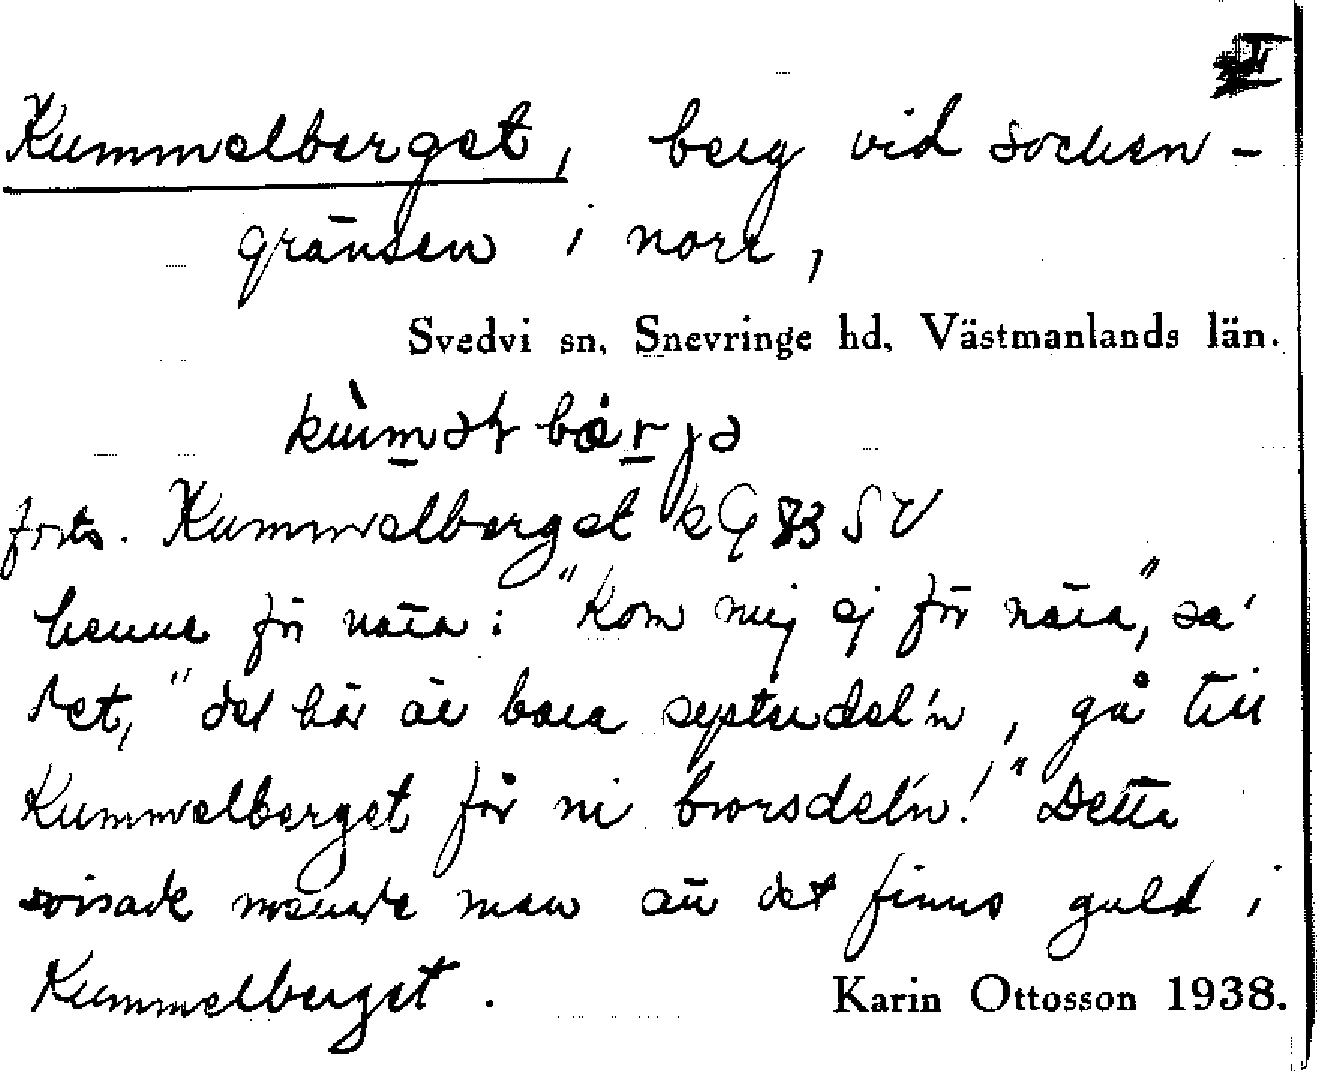 II
Kummelberget, berg vid socken-
gränsen i norr,
Svedvi sn, Snevringe hd, Västmanlands län.
forts. Kummelberget
henne för nära: "Kom mig ej för nära", sa'
det, "det här är bara systerdel'n, gå till
Kummelberget får ni brorsdel'n!" Detta
visade menade man att det finns guld i
Kummelberget.
Karin Ottosson 1938.